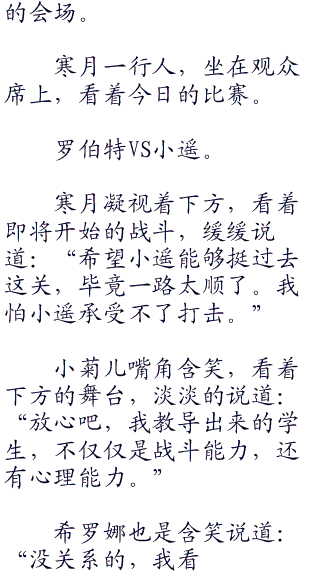 的会场。
寒月一行人，坐在观众
席上，看着今日的比赛。
罗伯特VS小遥。
寒月凝视着下方，看着
即将开始的战斗，缓缓说
道：“希望小遥能够挺过去
这关，毕竟一路太顺了。我
怕小遥承受不了打击。”
小菊儿嘴角含笑，看着
下方的舞台，淡淡的说道：
“放心吧，我教导出来的学
生，不仅仅是战斗能力，还
有心理能力。”
希罗娜也是含笑说道：
“没关系的，我看